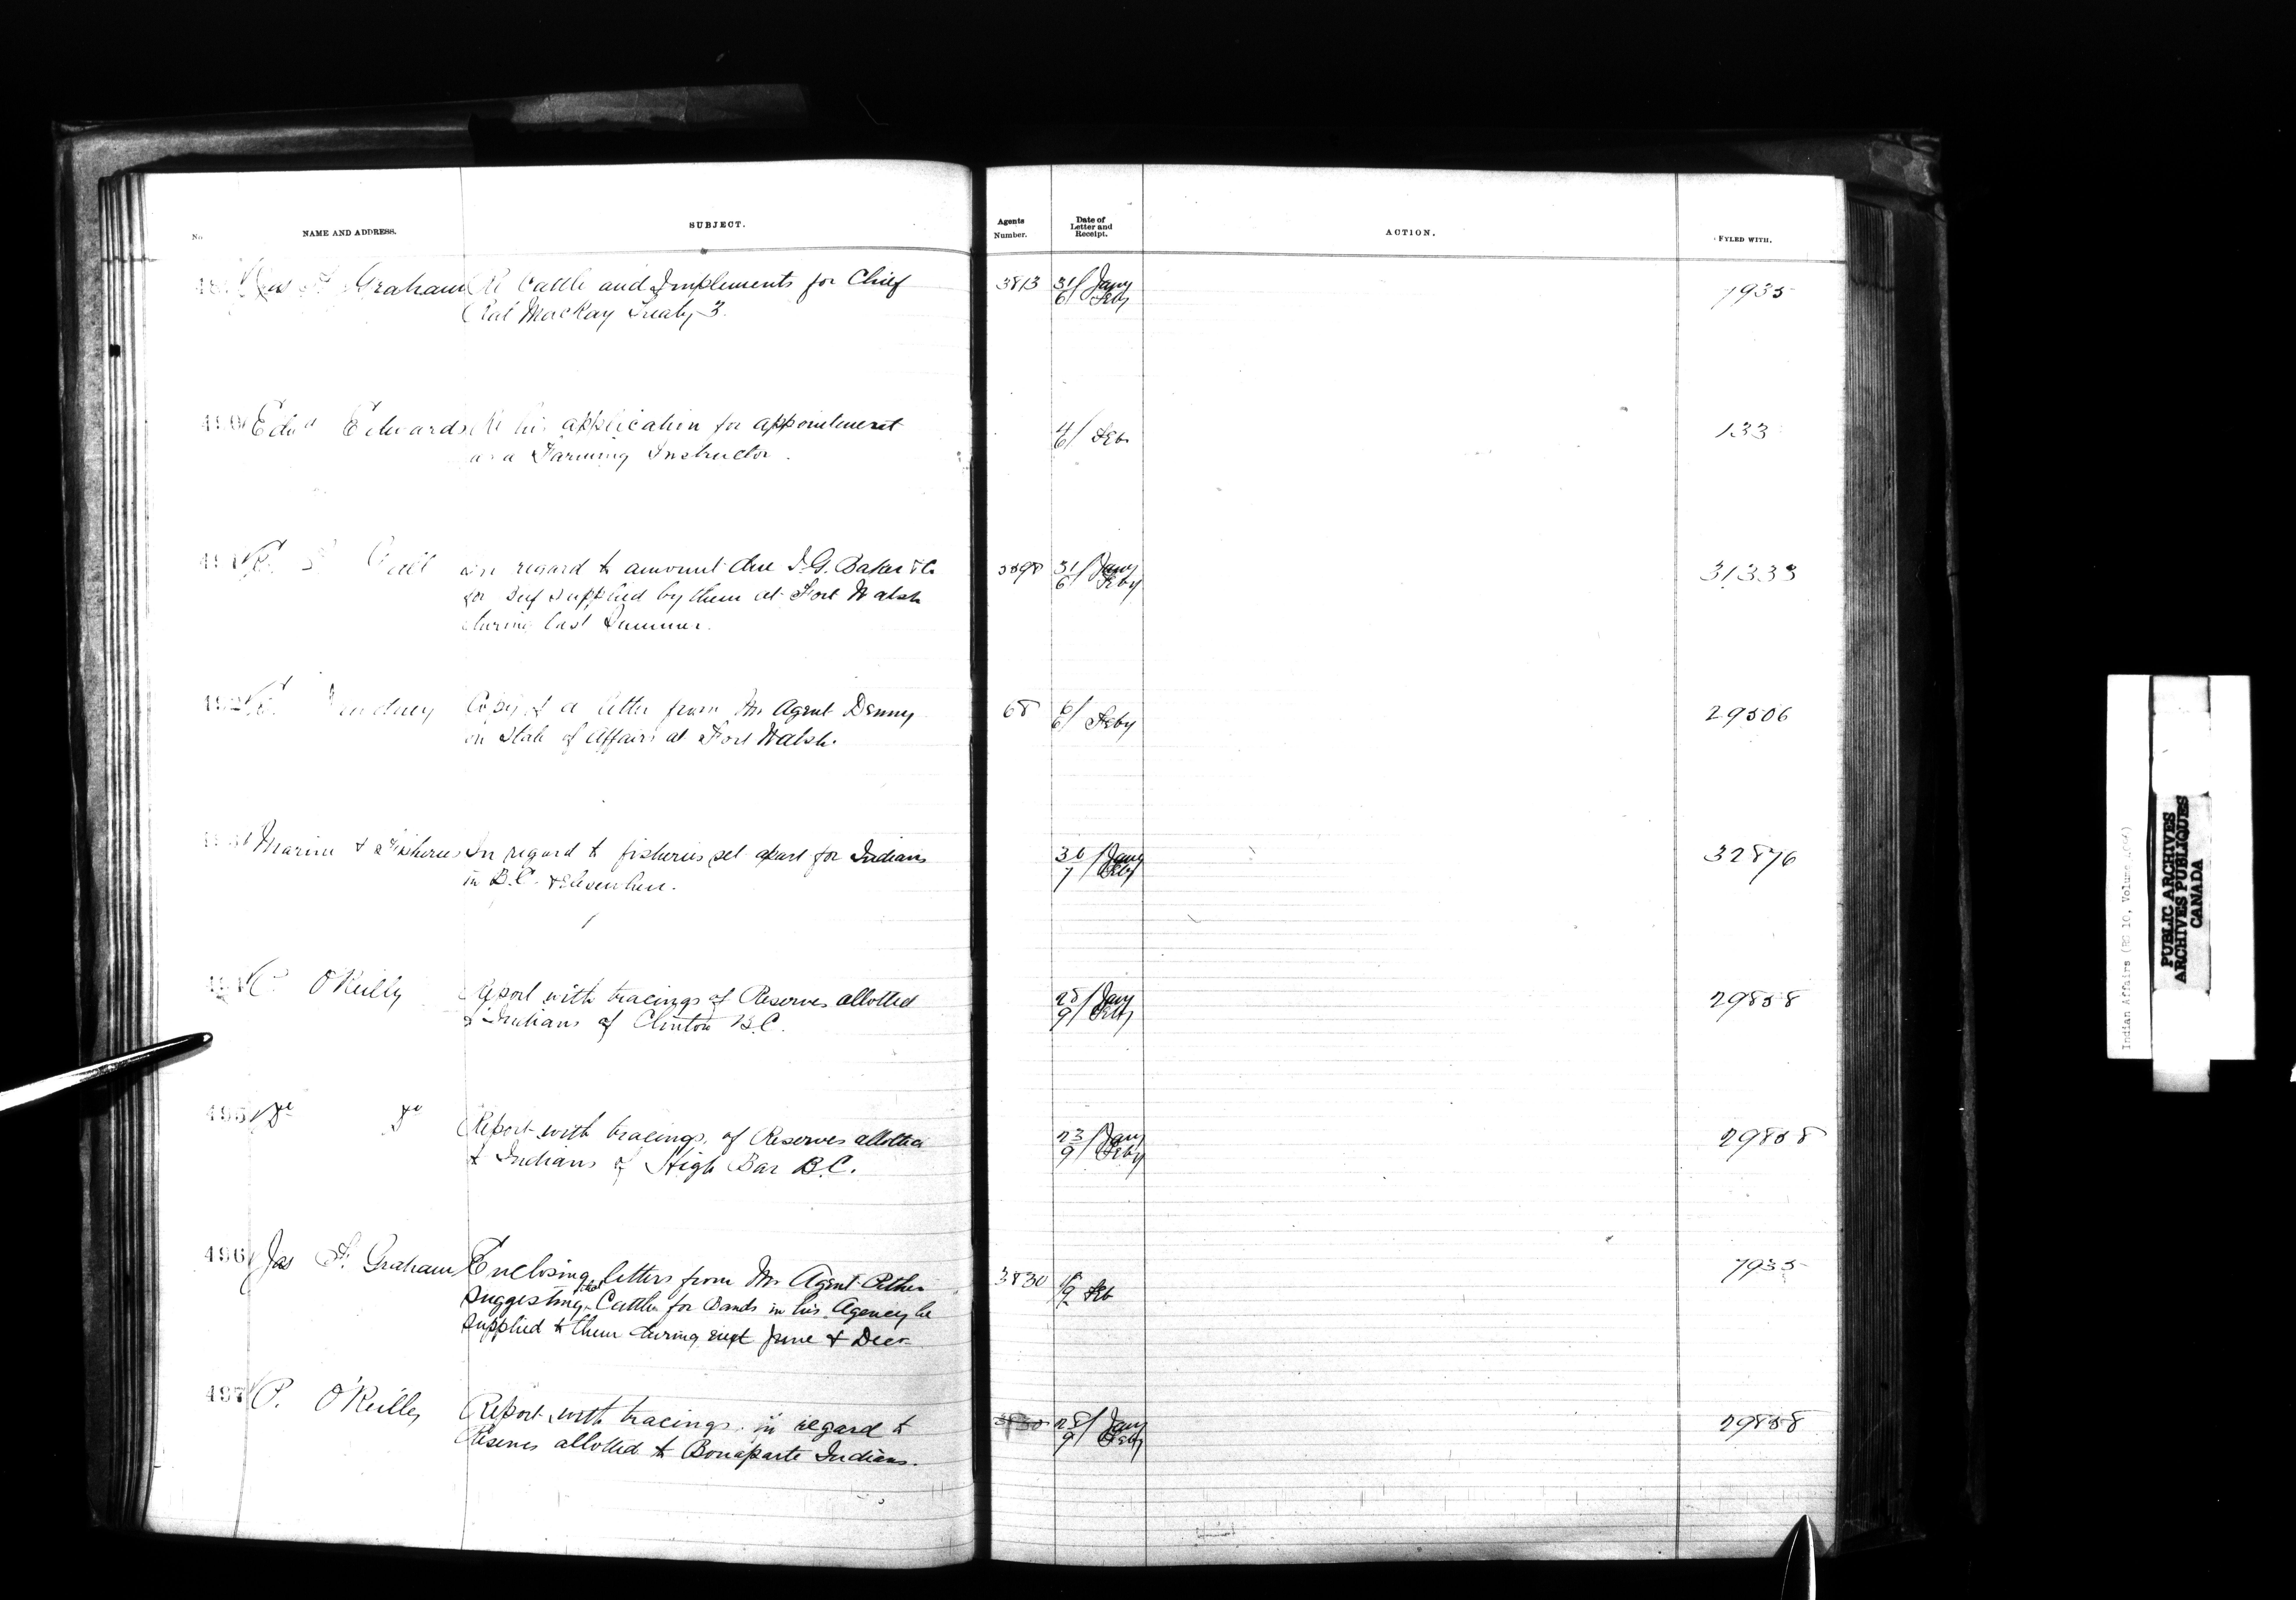 No.
NAME AND ADDRESS.
SUBJECT.
Agents Number.
Date of Letter and Receipt.
ACTION.
FYLED WITH.
Graham Re Cattle and Implements for Chief 3813 31/6 Jany Feby 7935
Rat MacKay Treaty 3.
490 Edwd Edwards Re his application for appointment 4/6 Feb 133
as a Farming Instructor.
In regard to amount due I.G. Baker & Co 31/6 Jany Feby 31333
for beef supplied by them at Fort Walsh
during last Summer.
Copy of a letter from Mr Agent Denny 68 6/6 Feby 29506
on State of Affairs at Fort Walsh.
Marine & Fisheries In regard to fisheries set apart for Indians 30/7 Jany Feby 32876
in B.C. & elsewhere.
O'Reilly Report with tracings of Reserves allotted 28/9 Jany Feby 29858
to Indians of Clinton B.C.
495 Do Do Report with tracings of Reserves allotted 23/9 Jany Feby 29858
to Indians of High Bar B.C.
496 Jas F. Graham Enclosing letters from Mr Agent Pither 3830 6/9 Feb 7935
suggesting that Cattle for Bands in his Agency be
supplied to them during next June & Decr
497 P. O'Reilly Report with tracings in regard to 3830 28/9 Jany Feby 29858
Reserves allotted to Bonaparte Indians.
Indian Affairs (RG 10, Volume
PUBLIC ARCHIVES
ARCHIVES PUBLIQUES
CANADA